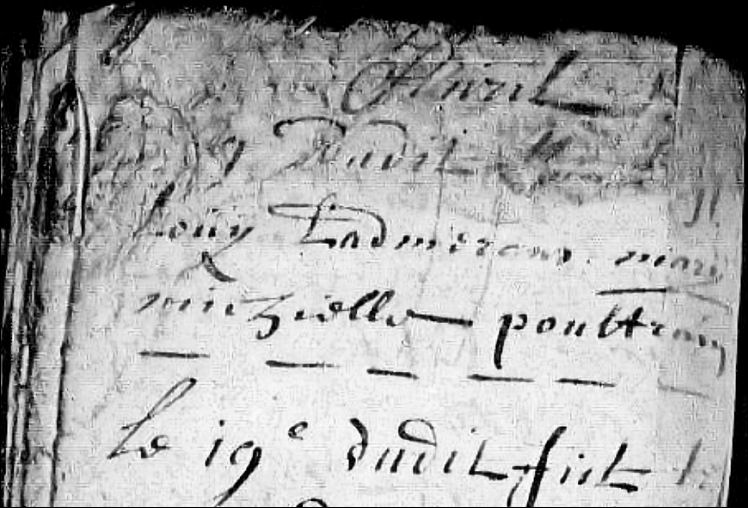 Apvril
9 dudit
Louÿ Ladmerans mary
michielle poultrain
Le 19e dudit fut